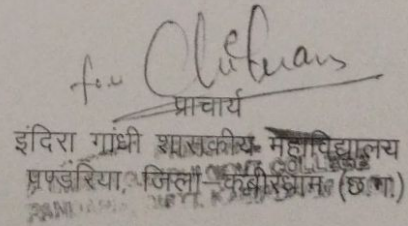 for
प्राचार्य
इंदिरा गांधी शासकीय महाविद्यालय
पण्डरिया, जिला-कबीरधाम (छ.ग.)